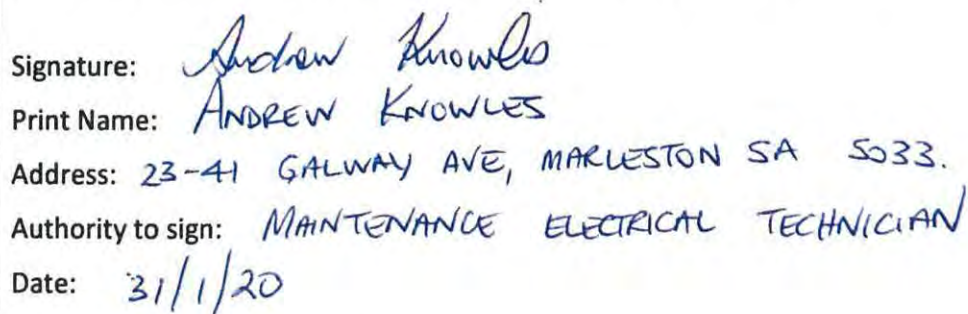 Signature: Andrew Knowles
Print Name: ANDREW KNOWLES
Address: 23-41 GALWAY AVE, MARLESTON SA 5033.
Authority to sign: MAINTENANCE ELECTRICAL TECHNICIAN
Date: 31/1/20